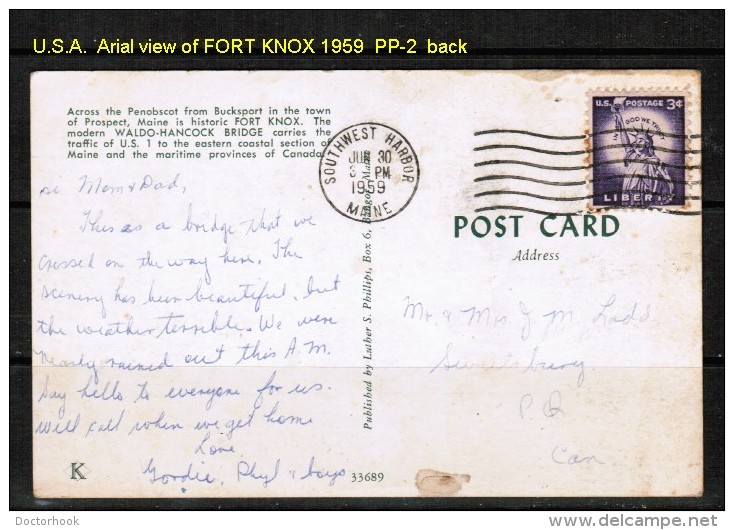 U.S.A. Arial view of FORT KNOX 1959 PP-2 back
Across the Penobscot from Bucksport in the town
of Prospect, Maine is historic FORT KNOX. The
modern WALDO-HANCOCK BRIDGE carries the
traffic of U.S. 1 to the eastern coastal section of
Maine and the maritime provinces of Canada.
SOUTHWEST HARBOR
JUN 30
PM
1959
MAINE
U.S. POSTAGE 3¢
IN GOD WE TRUST
LIBERTY
Mom & Dad,
This is a bridge that we
crossed on the way here. The
scenery has been beautiful, but
the weather terrible. We were
nearly rained out this A.M.
Say hello to everyone for us.
Will call when we get home
Love
Gordie, Phyl & boys
K
33689
Published by Luther S. Phillips, Box 6, Bangor, Maine
POST CARD
Address
Mr. & Mrs J. M. Ladd
Sweetsburg
P Q
Can.
Doctorhook
delcampe.net